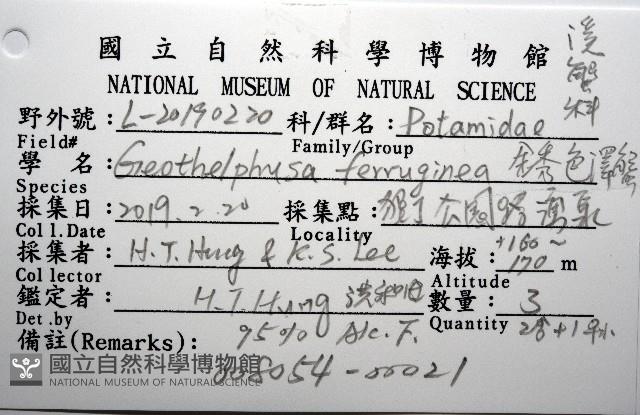 國立自然科學博物館
NATIONAL MUSEUM OF NATURAL SCIENCE
溪蟹科
野外號:L-20190220 科/群名:Potamidae
Field# Family/Group
學 名:Geothelphusa ferruginea 銹色澤蟹
Species
採集日:2019.2.20 採集點:
Coll.Date Locality
採集者:H.T. Hung & K.S. Lee 海拔:+160~170 m
Collector Altitude
鑑定者:H.T. Hung 洪和田 數量:3
Det.by Quantity 2♂+1♀
備註(Remarks): 95% Alc. F.
008054-00021
國立自然科學博物館
NATIONAL MUSEUM OF NATURAL SCIENCE